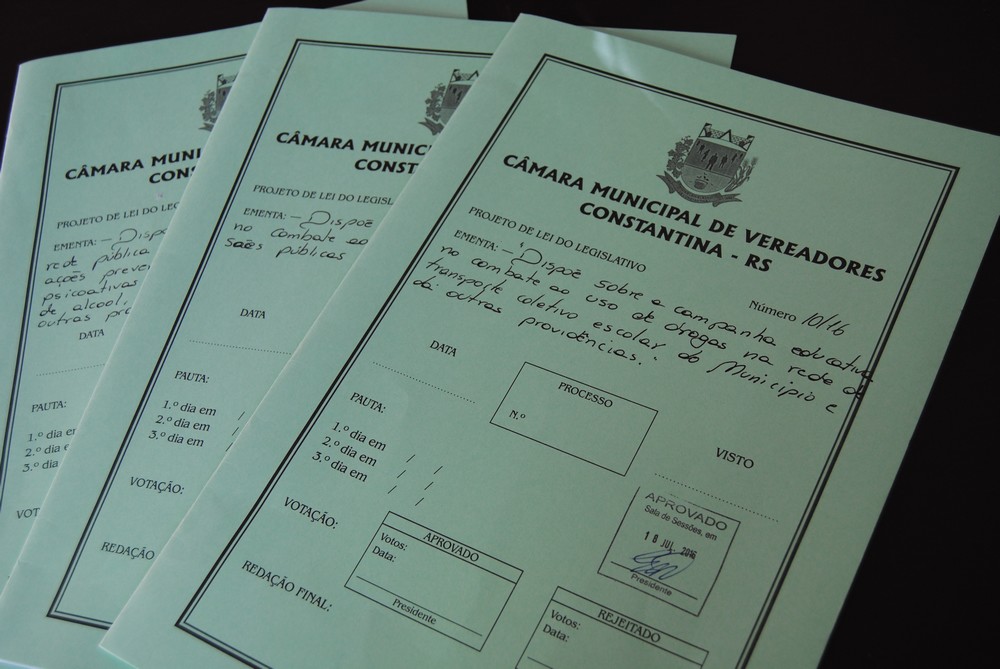 CÂMARA MUNI
CONS
PROJETO DE LEI DO LEG
EMENTA: - Dispo
rede pública
ações preve
psicoativas
de alcool,
outras pro
DATA
PAUTA:
1.º dia em
2.º dia e
3.º dia
VOT
CÂMARA MUNIC
CONST
PROJETO DE LEI DO LEGISL
EMENTA: - Dispoe
no combate ao
sões públicas
DATA
PAUTA:
1.º dia em /
2.º dia em
3.º dia em /
VOTAÇÃO:
REDAÇÃO
CÂMARA MUNICIPAL DE VEREADORES
CONSTANTINA - RS
PROJETO DE LEI DO LEGISLATIVO
Número 10/16
EMENTA: - "Dispoe sobre a campanha educativa
no combate ao uso de drogas na rede de
transporte coletivo escolar do Municipio e
dá outras providências.
DATA
PROCESSO
N.º
VISTO
PAUTA:
1.º dia em / /
2.º dia em / /
3.º dia em / /
VOTAÇÃO:
APROVADO
Sala de Sessões, em
18 JUL 2016
Presidente
APROVADO
Votos:
Data:
Presidente
REDAÇÃO FINAL:
REJEITADO
Votos:
Data: